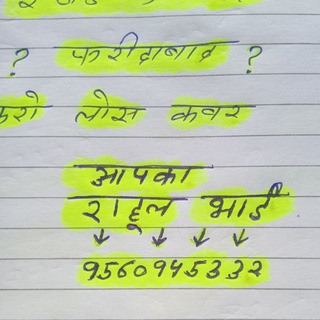 ? फरीदाबाद ?
करो लोस कवर
आपका
राहूल भाई
9560945332